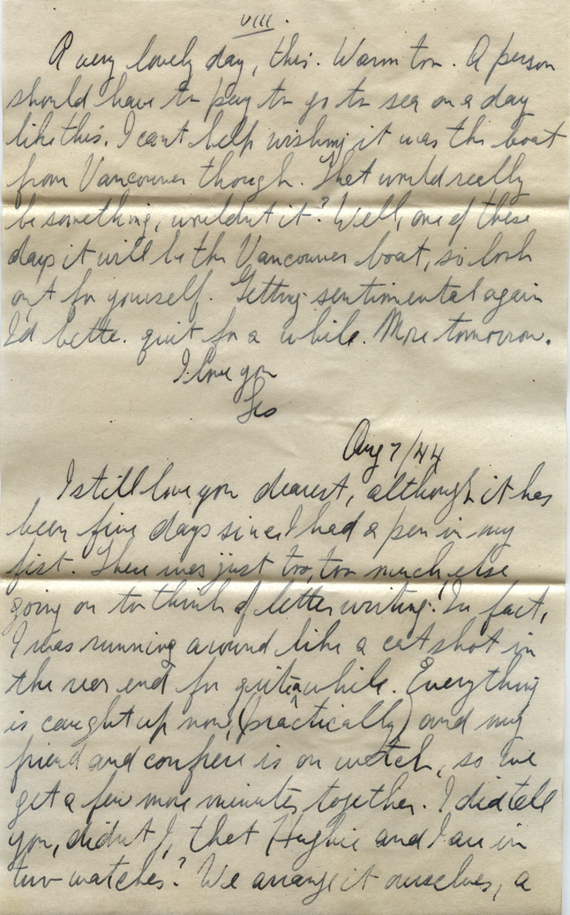 VIII.
A very lovely day, this. Warm too. A person
should have to pay to go to sea on a day
like this. I cant help wishing it was the boat
from Vancouver though. That would really
be something, wouldnt it? Well, one of these
days it will be the Vancouver boat, so look
out for yourself. Getting sentimental again
I'd better quit for a while. More tomorrow.
I love you
Les
Aug 7/44
I still love you dearest, although it has
been five days since I had a pen in my
fist. There was just too, too much else
going on to think of letter writing. In fact,
I was running around like a cat shot in
the rear end for quite a while. Everything
is caught up now, (practically) and my
friend and confrere is on watch, so we
get a few more minutes together. I did tell
you, didnt I, that Hughie and I are in
two watches? We arrange it ourselves, a